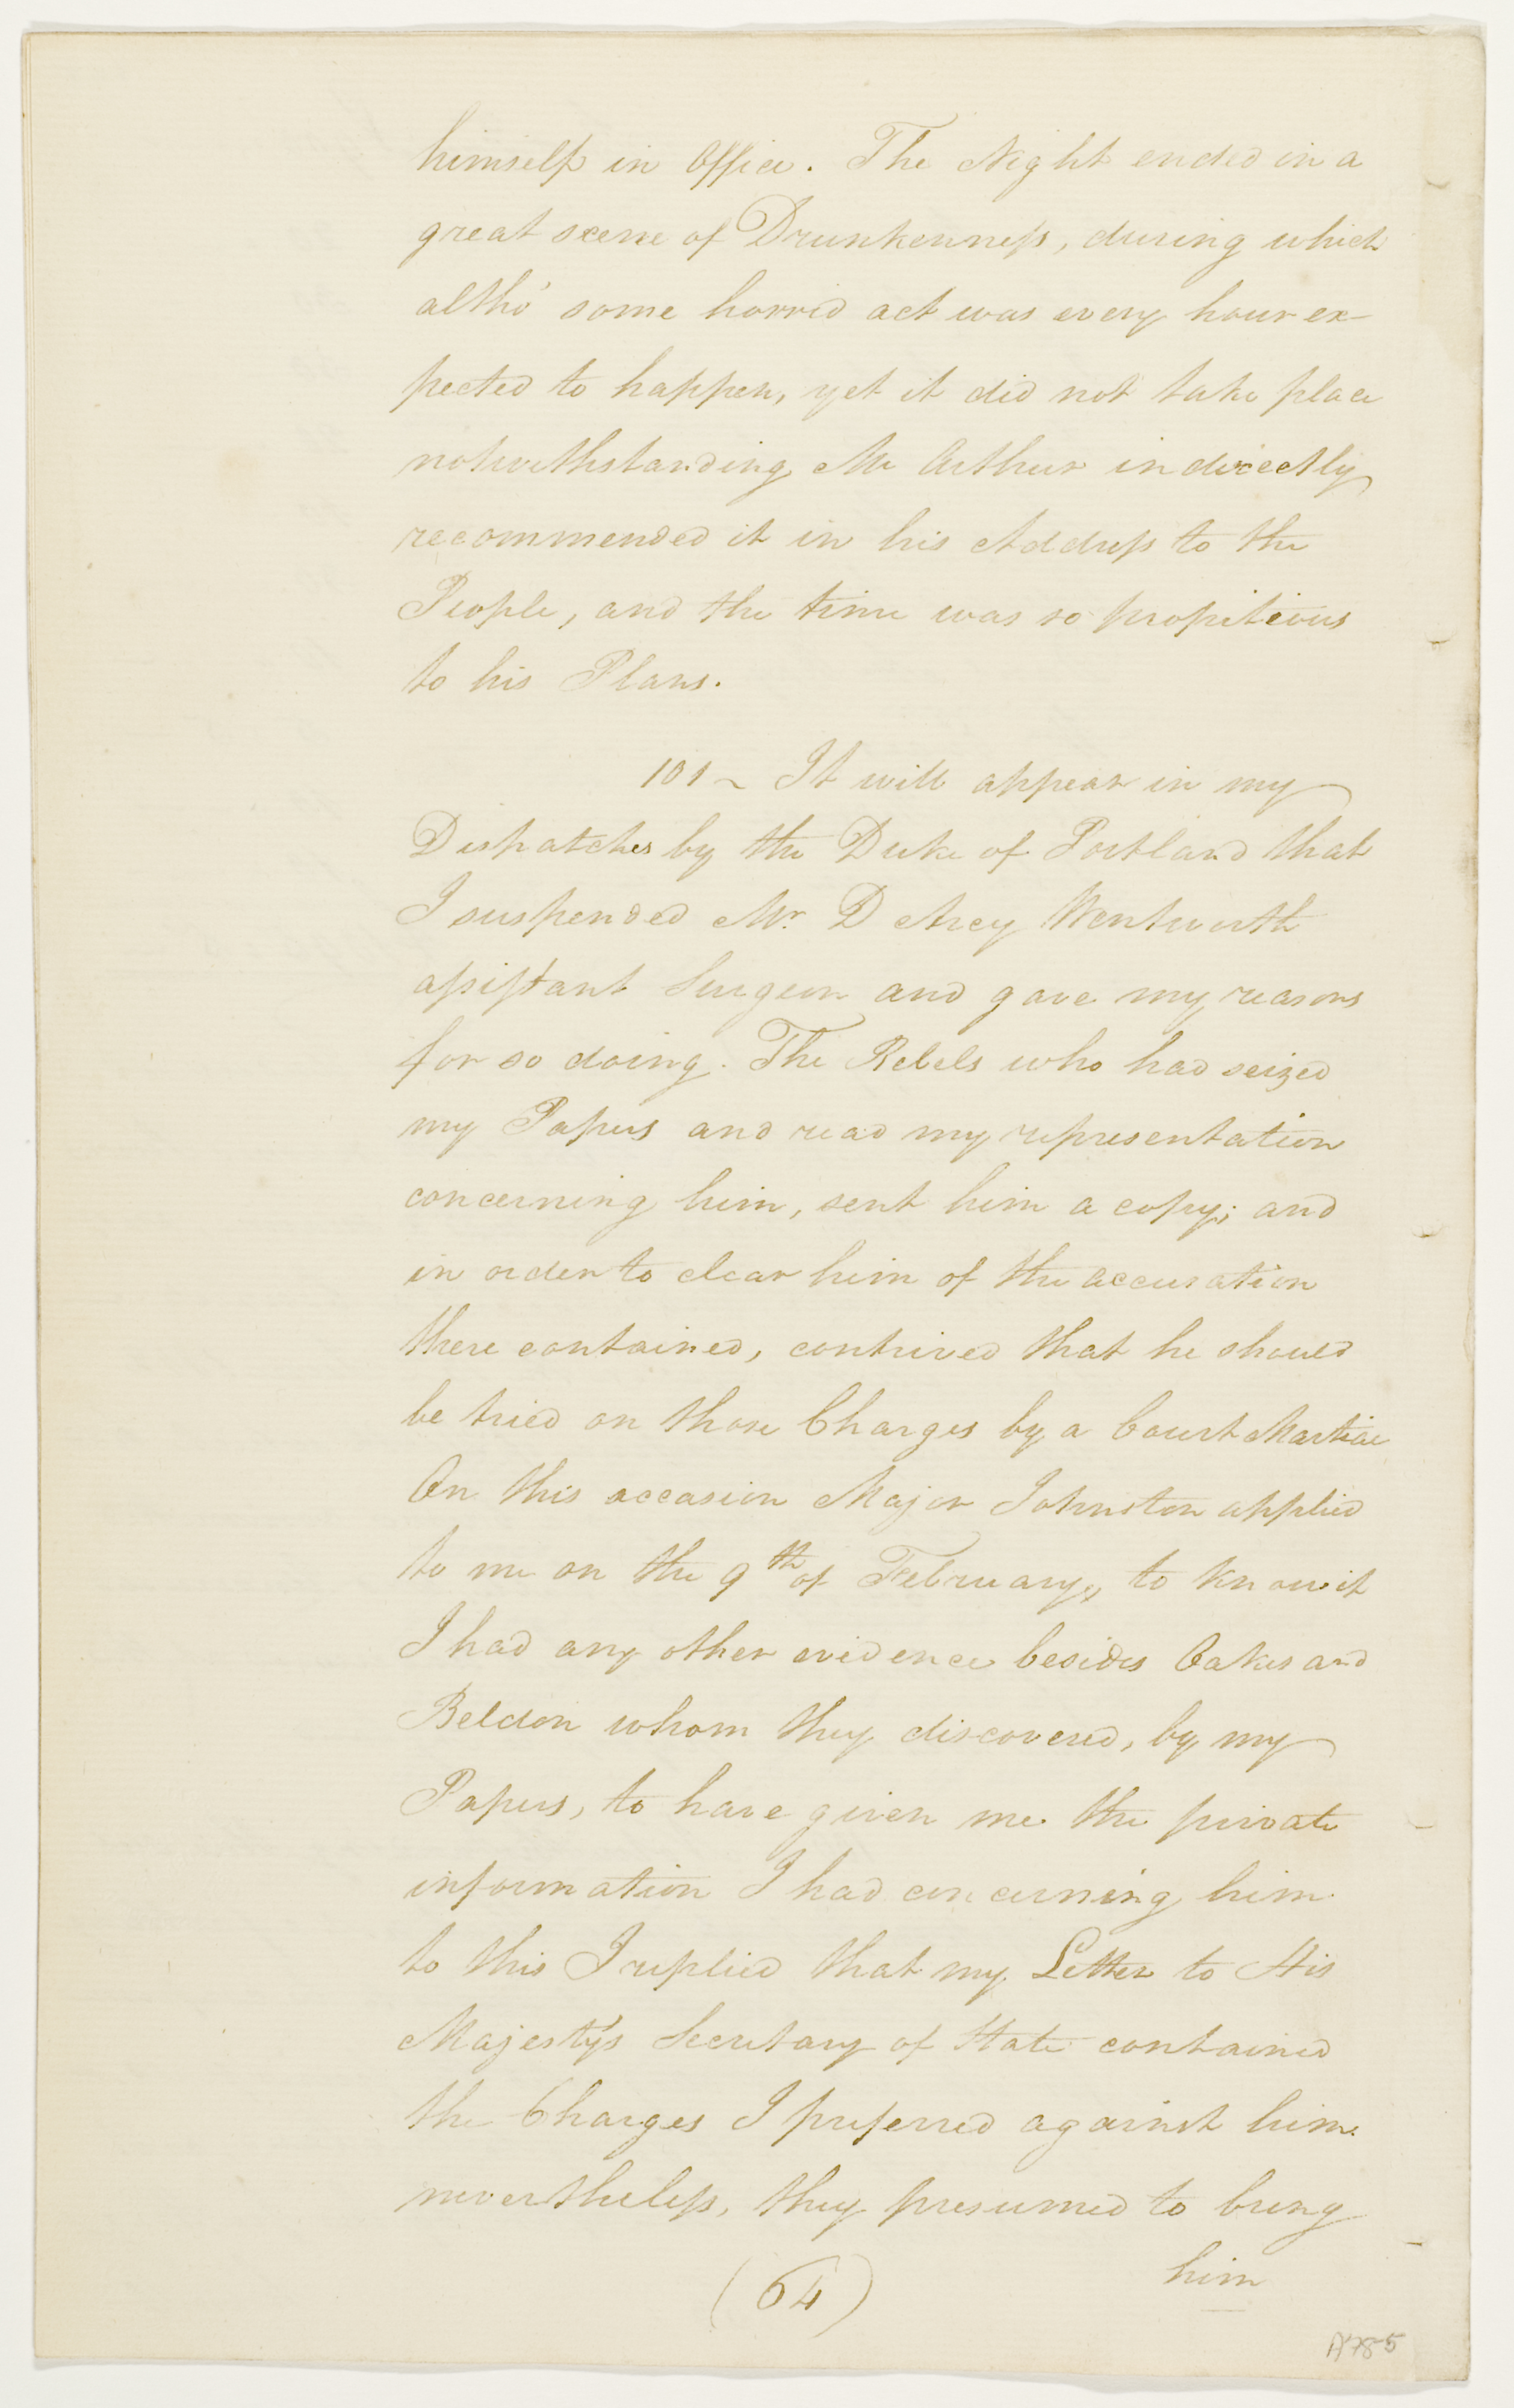 himself in Office. The Night ended in a
great scene of Drunkenness, during which
altho' some horrid act was every hour ex-
pected to happen, yet it did not take place
notwithstanding Mc Arthur indirectly
recommended it in his Address to the
People, and the time was so propitious
to his Plans.
101 ~ It will appear in my
Dispatches by the Duke of Portland that
I suspended Mr. D Arcy Wentworth
assistant Surgeon and gave my reasons
for so doing. The Rebels who had seized
my Papers and read my representation
concerning him, sent him a copy; and
in order to clear him of the accusation
there contained, contrived that he should
be tried on those Charges by a Court Martial
On this occasion Major Johnston applied
to me on the 9th of February, to know if
I had any other evidence besides Oakes and
Beldon whom they discovered, by my
Papers, to have given me the private
information I had concerning him.
to this I replied that my Letter to His
Majesty's Secretary of State contained
the Charges I preferred against him.
nevertheless, they presumed to bring
him
(64)
A785